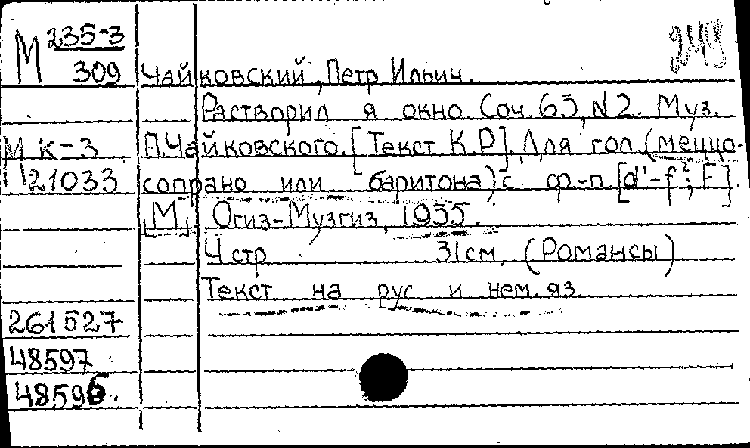 М 235-3
309
Чайковский, Петр Ильич.
Растворил я окно. Соч. 63, N2. Муз.
М К-3
П. Чайковского. [Текст К.Р]. Для гол. (меццо-
21033
сопрано или баритона) с ф-п. [d'-f²; F].
[М], Огиз-Музгиз, 1935.
4 стр. 31 см. (Романсы)
Текст на рус и нем. яз.
261527
48597
48596.